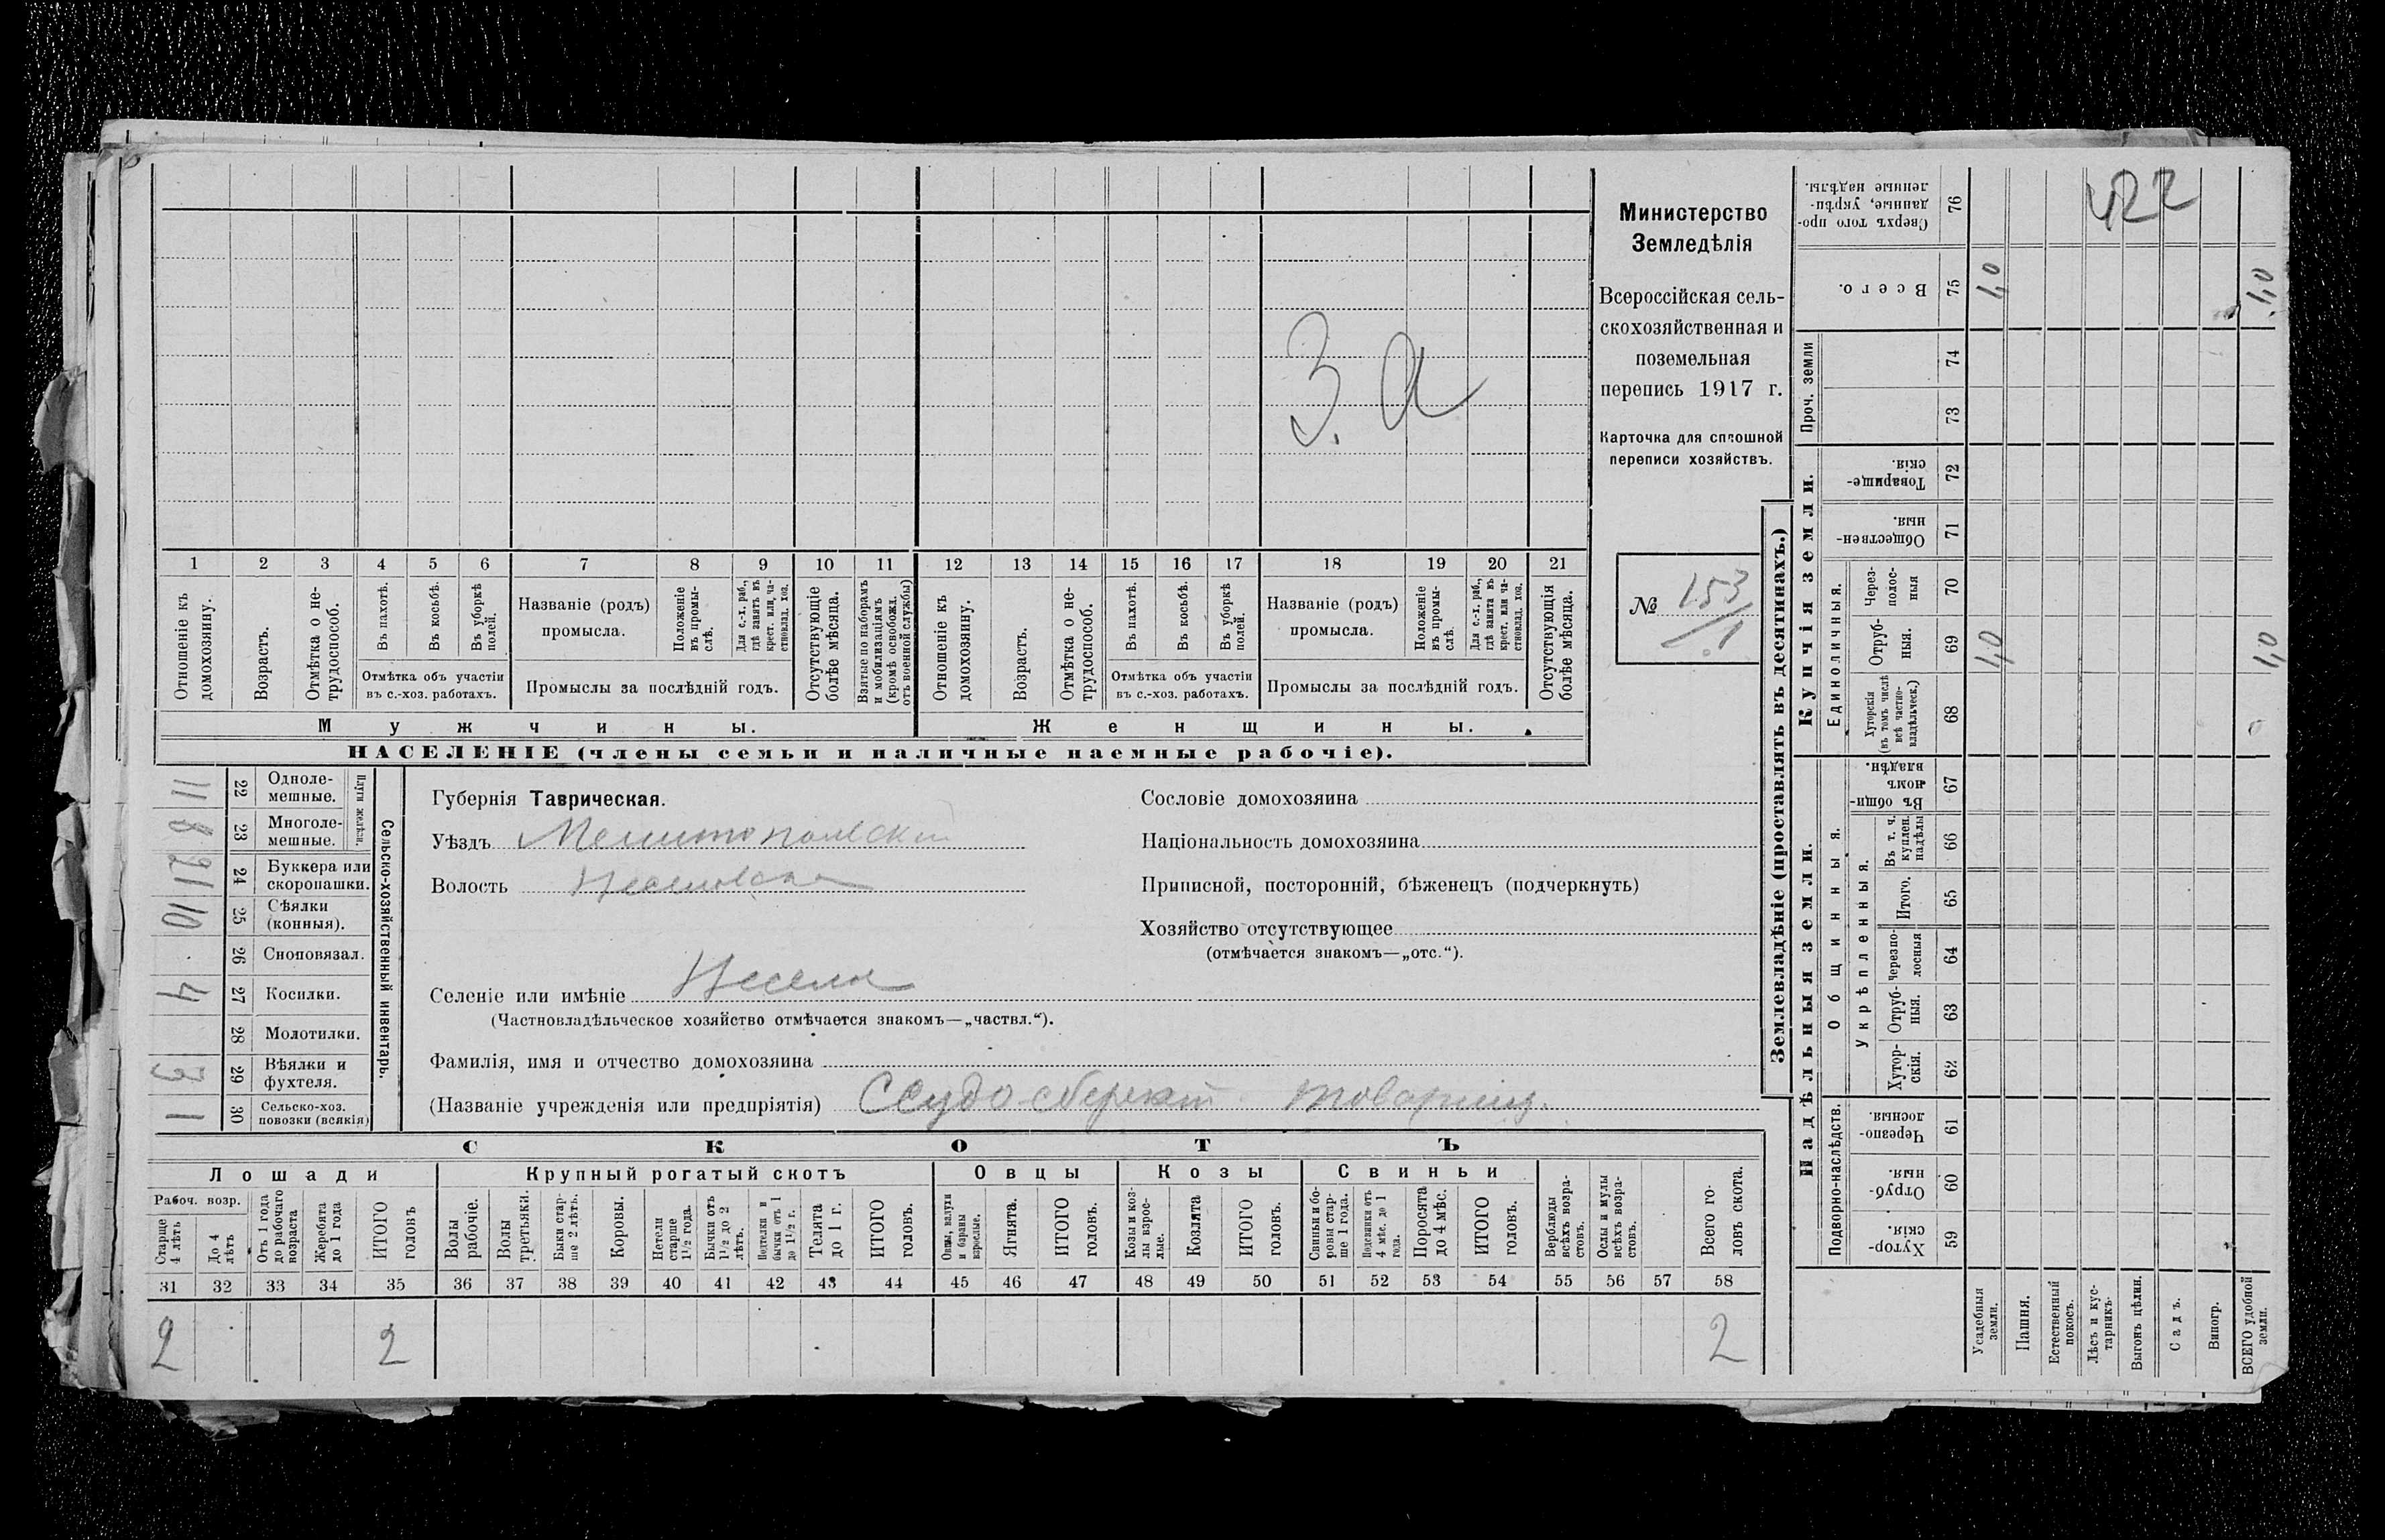 3. а
1 2 3 4 5 6 7 8 9 10 11 12 13 14 15 16 17 18 19 20 21
Отношеніе къ домохозяину.
Возрастъ.
Отмѣтка о не-
трудоспособ.
Въ пахотѣ.
Въ косьбѣ.
Въ уборкѣ полей.
Отмѣтка объ участіи
въ с.-хоз. работахъ.
Названіе (родъ)
промысла.
Положеніе
въ промы-
слѣ.
Для с.-х. раб.,
гдѣ занятъ въ
крест. или ча-
стновлад. хоз.
Промыслы за послѣдній годъ.
Отсутствующіе
болѣе мѣсяца.
Взятые по наборамъ
и мобилизаціямъ
(кромѣ освобожд.
отъ военной службы)
Отношеніе къ
домохозяину.
Возрастъ.
Отмѣтка о не-
трудоспособ.
Въ пахотѣ.
Въ косьбѣ.
Въ уборкѣ
полей.
Отмѣтка объ участіи
въ с.-хоз. работахъ.
Названіе (родъ)
промысла.
Положеніе
въ промы-
слѣ.
Для с.-х. раб.,
гдѣ занята въ
крест. или ча-
стновлад. хоз.
Промыслы за послѣдній годъ.
Отсутствующія
болѣе мѣсяца.
Мужчины.
Женщины.
НАСЕЛЕНІЕ (члены семьи и наличные наемные рабочіе).
Министерство
Земледѣлія
Всероссійская сель-
скохозяйственная и
поземельная
перепись 1917 г.
Карточка для сплошной
переписи хозяйствъ.
№ 153/1
Сельско-хозяйственный инвентарь.
Плуги желѣзн.
11 22 Одноле-
мешные.
8 23 Многоле-
мешные.
21 24 Буккера или
скоропашки.
10 25 Сѣялки
(конныя).
26 Сноповязал.
4 27 Косилки.
28 Молотилки.
3 29 Вѣялки и
фухтеля.
1 30 Сельско-хоз.
повозки (всякія)
Губернія Таврическая.
Уѣздъ Мелитопольскій
Волость
Селеніе или имѣніе
(Частновладѣльческое хозяйство отмѣчается знакомъ—„частвл.“).
Фамилія, имя и отчество домохозяина
(Названіе учрежденія или предпріятія) Ссудо сберегат товарищ.
Сословіе домохозяина
Національность домохозяина
Приписной, посторонній, бѣженецъ (подчеркнуть)
Хозяйство отсутствующее
(отмѣчается знакомъ—„отс.“).
СКОТЪ
Лошади
Крупный рогатый скотъ
Овцы
Козы
Свиньи
Рабоч. возр.
Старше
4 лѣтъ
До 4
лѣтъ
Отъ 1 года
до рабочаго
возраста
Жеребята
до 1 года
ИТОГО
головъ
Волы
рабочіе.
Волы
третьяки.
Быки стар-
ше 2 лѣтъ.
Коровы.
Нетели
старше
1½ года.
Бычки отъ
1½ до 2
лѣтъ.
Телки и
бычки отъ 1
до 1½ г.
Телята
до 1 г.
ИТОГО
головъ.
Овцы, валухи
и бараны
взрослые.
Ягнята.
ИТОГО
головъ.
Козы и коз-
лы взрос-
лые.
Козлята
ИТОГО
головъ.
Свиньи и бо-
ровы стар-
ше 1 года.
Подсвинки отъ
4 мѣс. до 1
года.
Поросята
до 4 мѣс.
ИТОГО
головъ.
Верблюды
всѣхъ возра-
стовъ.
Ослы и мулы
всѣхъ возра-
стовъ.
Всего го-
ловъ скота.
31 32 33 34 35 36 37 38 39 40 41 42 43 44 45 46 47 48 49 50 51 52 53 54 55 56 57 58
2 2 2
Землевладѣніе (проставлять въ десятинахъ.)
Надѣльныя земли.
Купчія земли.
Проч. земли
Подворно-наслѣдств.
Общинныя.
Укрѣпленныя.
Единоличныя.
Сверхъ того про-
данные, укрѣп-
ленные надѣлы. 76
422
Всего. 75 1,0 1,0
74
73
Товарище-
скія. 72
Обществен-
ныя. 71
Через-
полос-
ныя 70
Отруб-
ныя. 69 1,0 1,0
Хуторскія
(въ томъ числѣ
всѣ частно-
владѣльческ.) 68
Въ общи-
номъ
владѣн. 67
Въ т. ч.
куплен.
надѣлы 66
Итого. 65
Черезпо-
лосныя 64
Отруб-
ныя. 63
Хутор-
скія. 62
Черезпо-
лосныя. 61
Отруб-
ныя. 60
Хутор-
скія. 59
Усадебныя
земли.
Пашня.
Естественный
покосъ.
Лѣсъ и кус-
тарникъ.
Выгонъ цѣлин.
Садъ.
Виногр.
ВСЕГО удобной
земли.